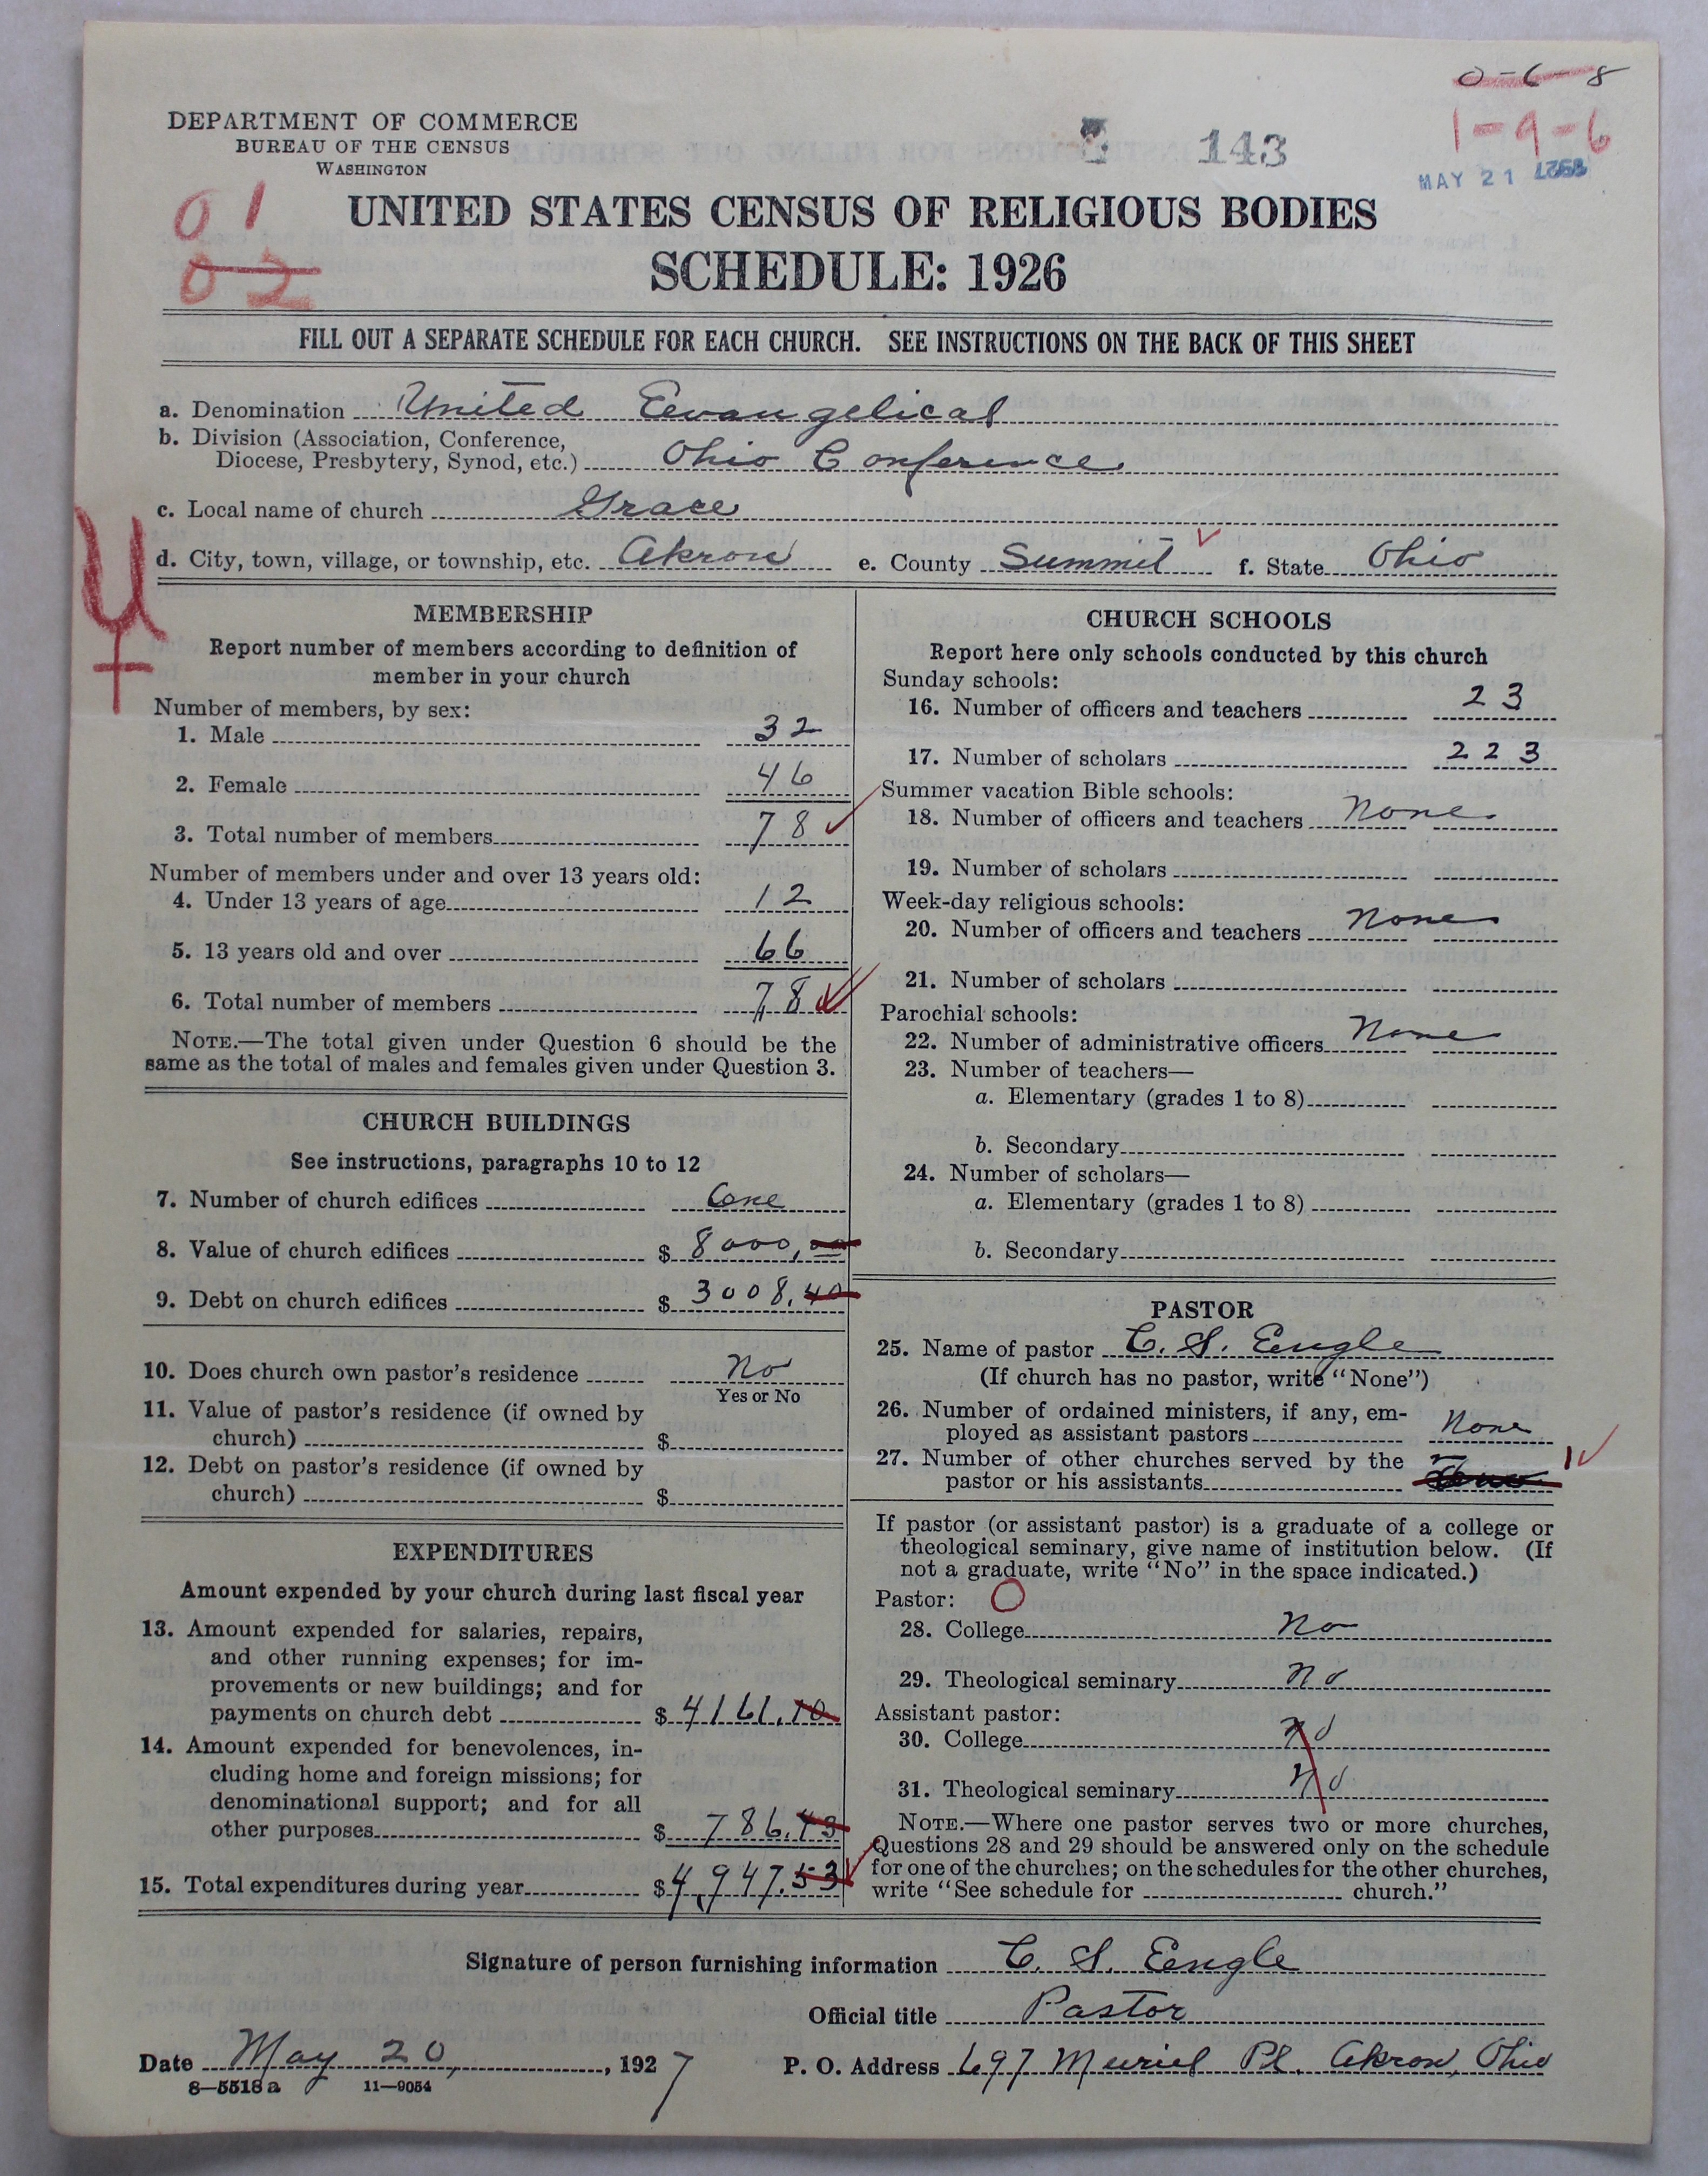 0-6-8
1-9-6
143
MAY 21 1927
DEPARTMENT OF COMMERCE
BUREAU OF THE CENSUS
WASHINGTON
01
02
UNITED STATES CENSUS OF RELIGIOUS BODIES
SCHEDULE: 1926
FILL OUT A SEPARATE SCHEDULE FOR EACH CHURCH. SEE INSTRUCTIONS ON THE BACK OF THIS SHEET
a. Denomination United Evangelical
b. Division (Association, Conference,
Diocese, Presbytery, Synod, etc.) Ohio Conference
c. Local name of church Grace
d. City, town, village, or township, etc. Akron e. County Summit f. State Ohio
MEMBERSHIP
Report number of members according to definition of
member in your church
Number of members, by sex:
1. Male 32
2. Female 46
3. Total number of members 78
Number of members under and over 13 years old:
4. Under 13 years of age 12
5. 13 years old and over 66
6. Total number of members 78
NOTE.—The total given under Question 6 should be the
same as the total of males and females given under Question 3.
CHURCH BUILDINGS
See instructions, paragraphs 10 to 12
7. Number of church edifices One
8. Value of church edifices $ 8000.00
9. Debt on church edifices $ 3008.40
10. Does church own pastor's residence No
Yes or No
11. Value of pastor's residence (if owned by
church) $
12. Debt on pastor's residence (if owned by
church) $
EXPENDITURES
Amount expended by your church during last fiscal year
13. Amount expended for salaries, repairs,
and other running expenses; for im-
provements or new buildings; and for
payments on church debt $ 4161.10
14. Amount expended for benevolences, in-
cluding home and foreign missions; for
denominational support; and for all
other purposes $ 786.43
15. Total expenditures during year $ 4,947.53
CHURCH SCHOOLS
Report here only schools conducted by this church
Sunday schools:
16. Number of officers and teachers 23
17. Number of scholars 223
Summer vacation Bible schools:
18. Number of officers and teachers None
19. Number of scholars
Week-day religious schools:
20. Number of officers and teachers None
21. Number of scholars
Parochial schools:
22. Number of administrative officers None
23. Number of teachers—
a. Elementary (grades 1 to 8)
b. Secondary
24. Number of scholars—
a. Elementary (grades 1 to 8)
b. Secondary
PASTOR
25. Name of pastor C. S. Engle
(If church has no pastor, write "None")
26. Number of ordained ministers, if any, em-
ployed as assistant pastors None
27. Number of other churches served by the
pastor or his assistants 1
If pastor (or assistant pastor) is a graduate of a college or
theological seminary, give name of institution below. (If
not a graduate, write "No" in the space indicated.)
Pastor:
28. College No
29. Theological seminary No
Assistant pastor:
30. College No
31. Theological seminary No
NOTE.—Where one pastor serves two or more churches,
Questions 28 and 29 should be answered only on the schedule
for one of the churches; on the schedules for the other churches,
write "See schedule for church."
Signature of person furnishing information C. S. Engle
Official title Pastor
Date May 20, 1927 P. O. Address 697 Muriel Pl. Akron, Ohio
8—5518a 11—9054